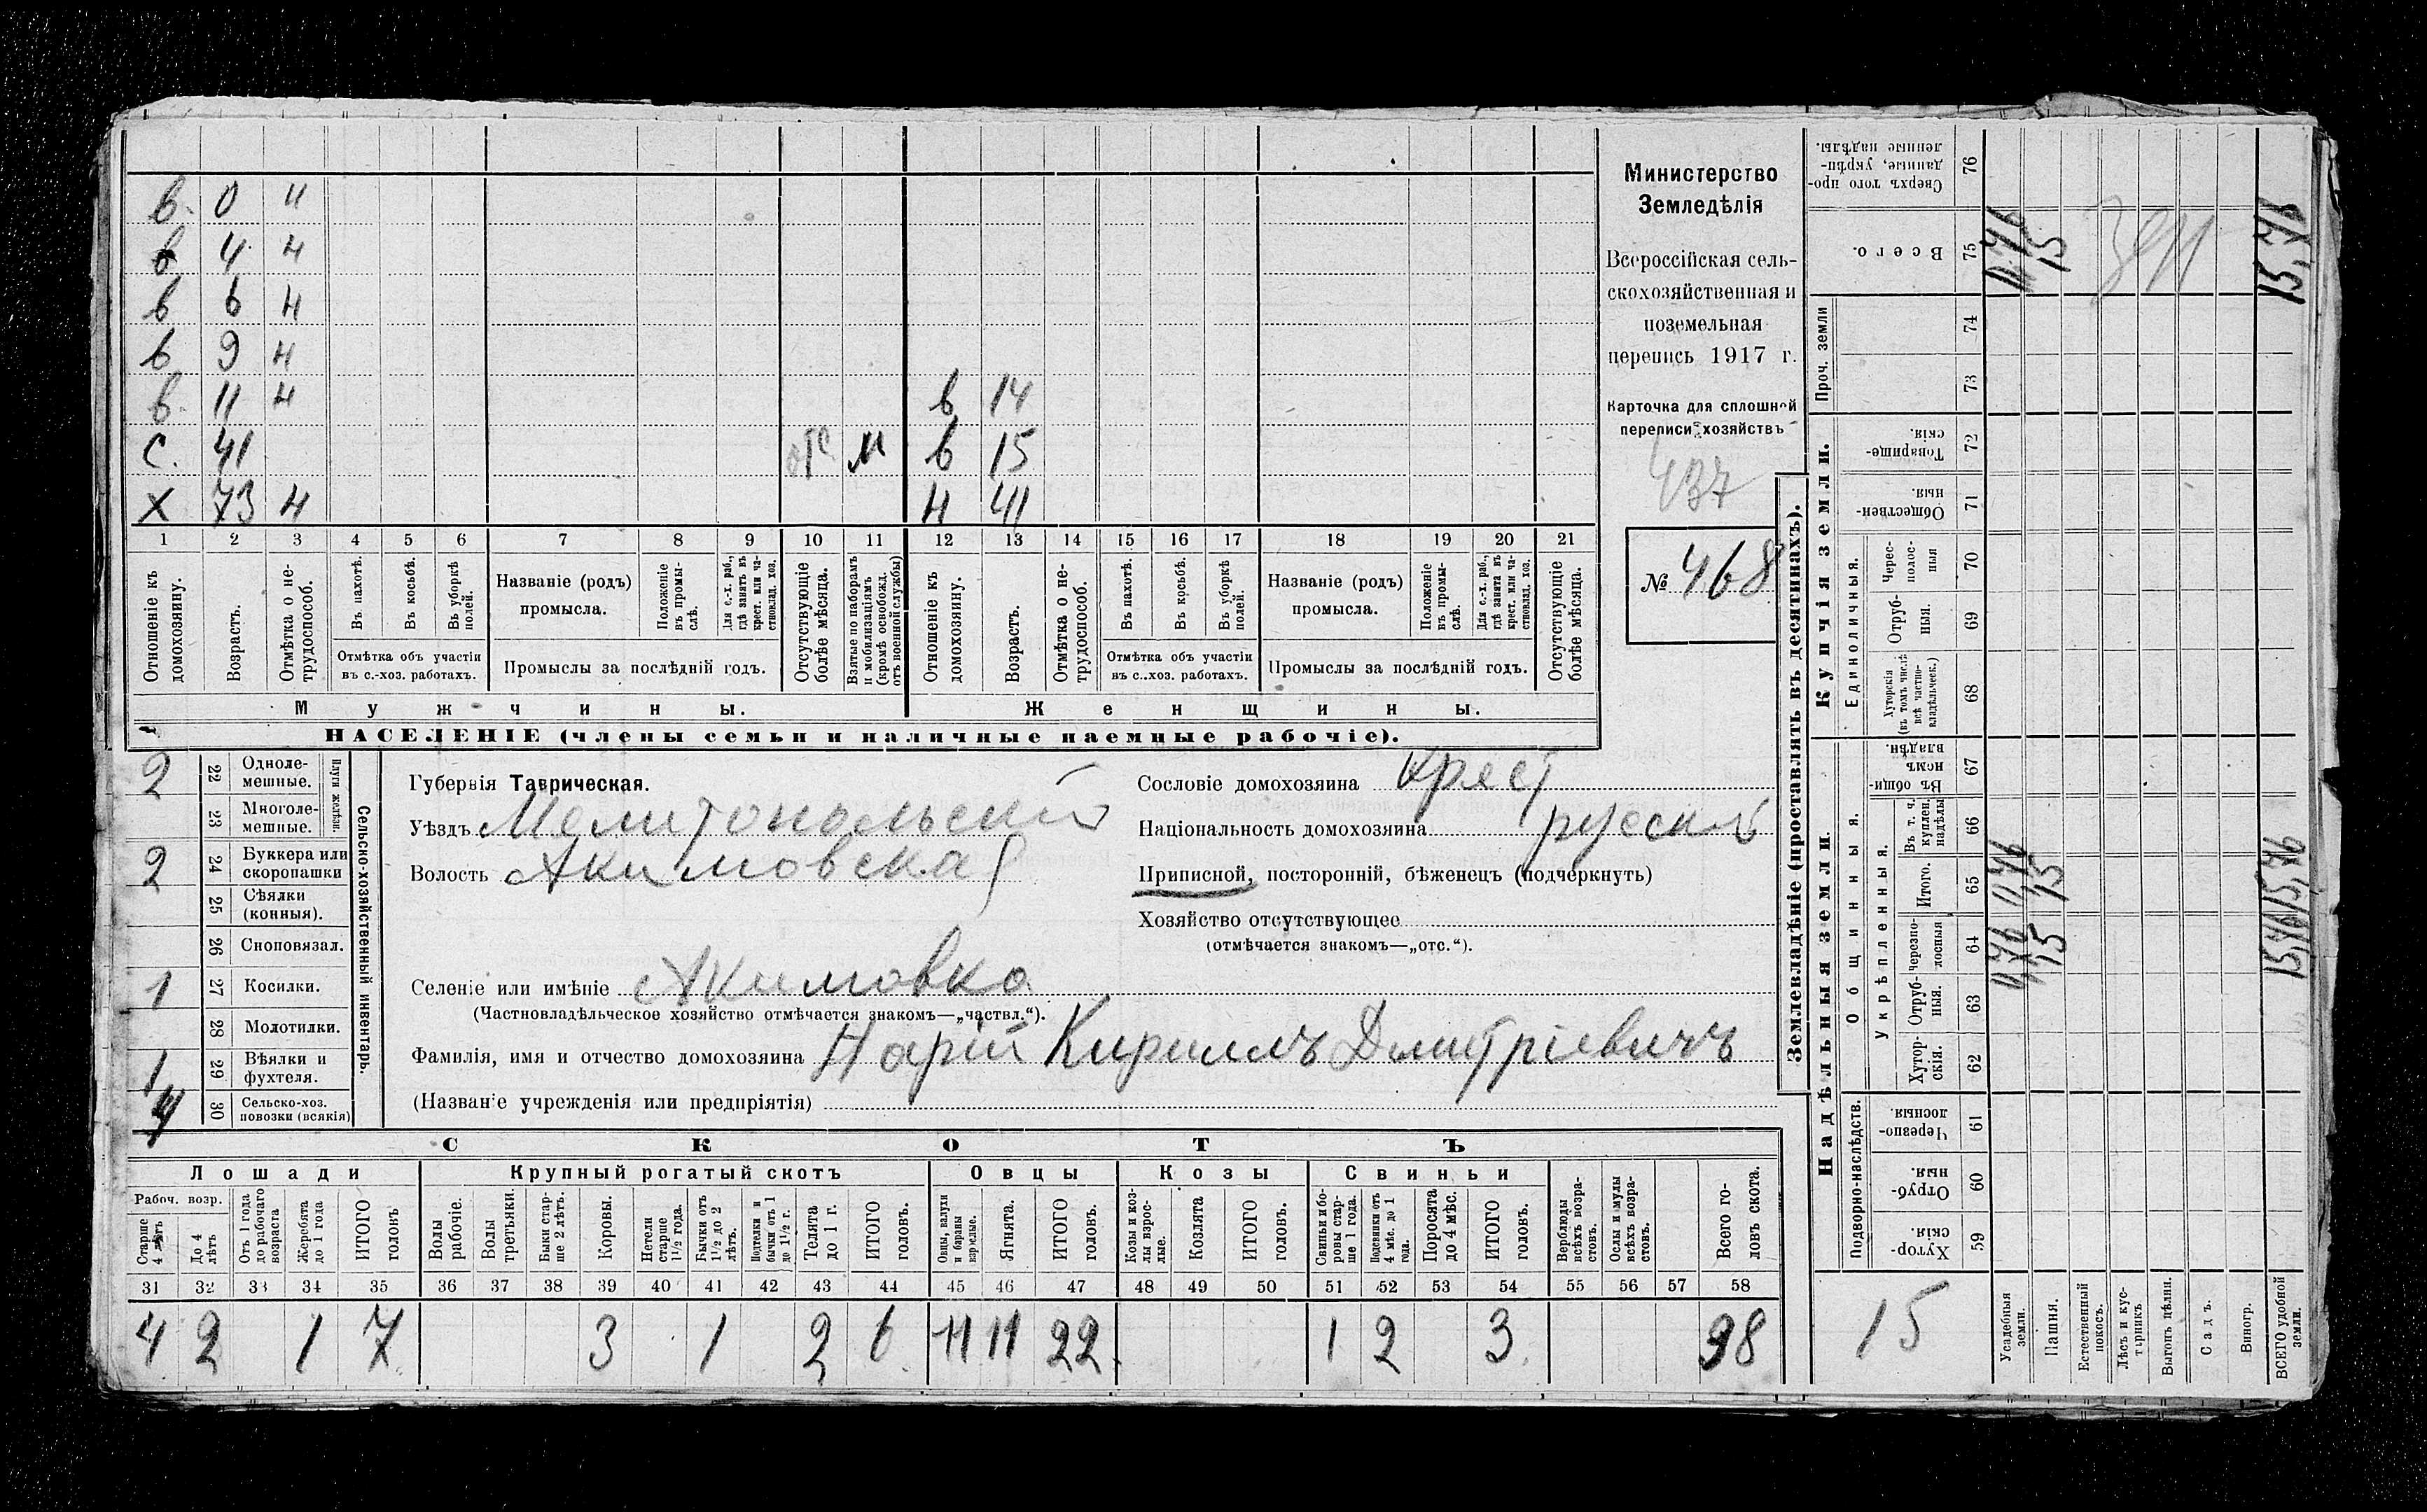 в. 0 н
в 4 н
в 6 н
в 9 н
в. 11 н в 14
с. 41 отс м в 15
х 73 н н 41
1 2 3 4 5 6 7 8 9 10 11 12 13 14 15 16 17 18 19 20 21
Отношеніе къ домохозяину.
Возрастъ.
Отмѣтка о не-трудоспособ.
Въ пахотѣ.
Въ косьбѣ.
Въ уборкѣ полей.
Отмѣтка объ участіи
въ с.-хоз. работахъ.
Названіе (родъ)
промысла.
Положеніе въ промы-слѣ.
Для с.-х. раб., гдѣ занятъ въ крест. или ча-стновлад. хоз.
Промыслы за послѣдній годъ.
Отсутствующіе болѣе мѣсяца.
Взятые по наборамъ и мобилизаціямъ (кромѣ освобожд. отъ военной службы)
Отношеніе къ домохозяину.
Возрастъ.
Отмѣтка о не-трудоспособ.
Въ пахотѣ.
Въ косьбѣ.
Въ уборкѣ полей.
Отмѣтка объ участіи
въ с..хоз. работахъ.
Названіе (родъ)
промысла.
Положеніе въ промы-слѣ.
Для с.-х. раб., гдѣ занята въ крест. или ча-стновлад. хоз.
Промыслы за послѣдній годъ.
Отсутствующіе болѣе мѣсяца.
Мужчины.
Женщины.
НАСЕЛЕНІЕ (члены семьи и наличные наемные рабочіе).
Министерство
Земледѣлія
Всероссійская сель-
скохозяйственная и
поземельная
перепись 1917 г.
Карточка для сплошной
переписи хозяйствъ
437
№ 468
2 22 Одноле-мешные.
23 Многоле-мешные.
Плуги желѣзн.
2 24 Буккера или скоропашки
25 Сѣялки (конныя).
26 Сноповязал.
1 27 Косилки.
28 Молотилки.
1 29 Вѣялки и фухтеля.
4 30 Сельско-хоз. повозки (всякія)
Сельско-хозяйственный инвентарь.
Губернія Таврическая.
Уѣздъ Мелитопольскій
Волость Акимовская
Селеніе или имѣніе Акимовка
(Частновладѣльческое хозяйство отмѣчается знакомъ—„частвл.“).
Фамилія, имя и отчество домохозяина Нарій Кириллъ Дмитріевичъ
(Названіе учрежденія или предпріятія)
Сословіе домохозяина Крест
Національность домохозяина русскій
Приписной, посторонній, бѣженецъ (подчеркнуть)
Хозяйство отсутствующее
(отмѣчается знакомъ—„отс.“).
СКОТЪ
Лошади
Крупный рогатый скотъ
Овцы
Козы
Свиньи
Рабоч. возр.
Старше 4 лѣтъ
До 4 лѣтъ
Отъ 1 года до рабочаго возраста
Жеребята до 1 года
ИТОГО головъ
Волы рабочіе.
Волы третьяки.
Быки стар-ше 2 лѣтъ.
Коровы.
Нетели старше 1½ года.
Бычки отъ 1½ до 2 лѣтъ.
Подтелки и бычки отъ 1 до 1½ г.
Телята до 1 г.
ИТОГО головъ.
Овцы, валухи и бараны взрослые.
Ягнята.
ИТОГО головъ.
Козы и коз-лы взрос-лые.
Козлята
ИТОГО головъ.
Свиньи и бо-ровы стар-ше 1 года.
Подсвинки отъ 4 мѣс. до 1 года.
Поросята до 4 мѣс.
ИТОГО головъ.
Верблюды всѣхъ возра-стовъ.
Ослы и мулы всѣхъ возра-стовъ.
Всего го-ловъ скота.
31 32 33 34 35 36 37 38 39 40 41 42 43 44 45 46 47 48 49 50 51 52 53 54 55 56 57 58
4 2 1 7 3 1 2 6 11 11 22 1 2 3 38
Землевладѣніе (проставлять въ десятинахъ).
Купчія земли.
Надѣльныя земли.
Сверхъ того про-данные, укрѣп-ленные надѣлы. 76
Всего. 75
Проч. земли 74 73
Товарище-скія. 72
Обществен-ныя. 71
Единоличныя.
Черес-полос-ныя 70
Отруб-ныя. 69
Хуторскія (въ томъ числѣ всѣ частно-владѣльческ.) 68
Общинныя.
Въ общи-номъ владѣн. 67
Укрѣпленныя.
Въ т. ч. куплен. надѣлы 66
Итого. 65
Черезпо-лосныя 64
Отруб-ныя. 63
Хутор-скія. 62
Подворно-наслѣдств.
Черезпо-лосныя. 61
Отруб-ныя. 60
Хутор-скія. 59
15
Усадебныя земли.
Пашня. 15 15 15
Естественный покосъ.
Лѣсъ и кус-тарникъ
Выгонъ цѣлин.
Садъ.
Виногр.
ВСЕГО удобной земли. 15,76 15,76 15,76